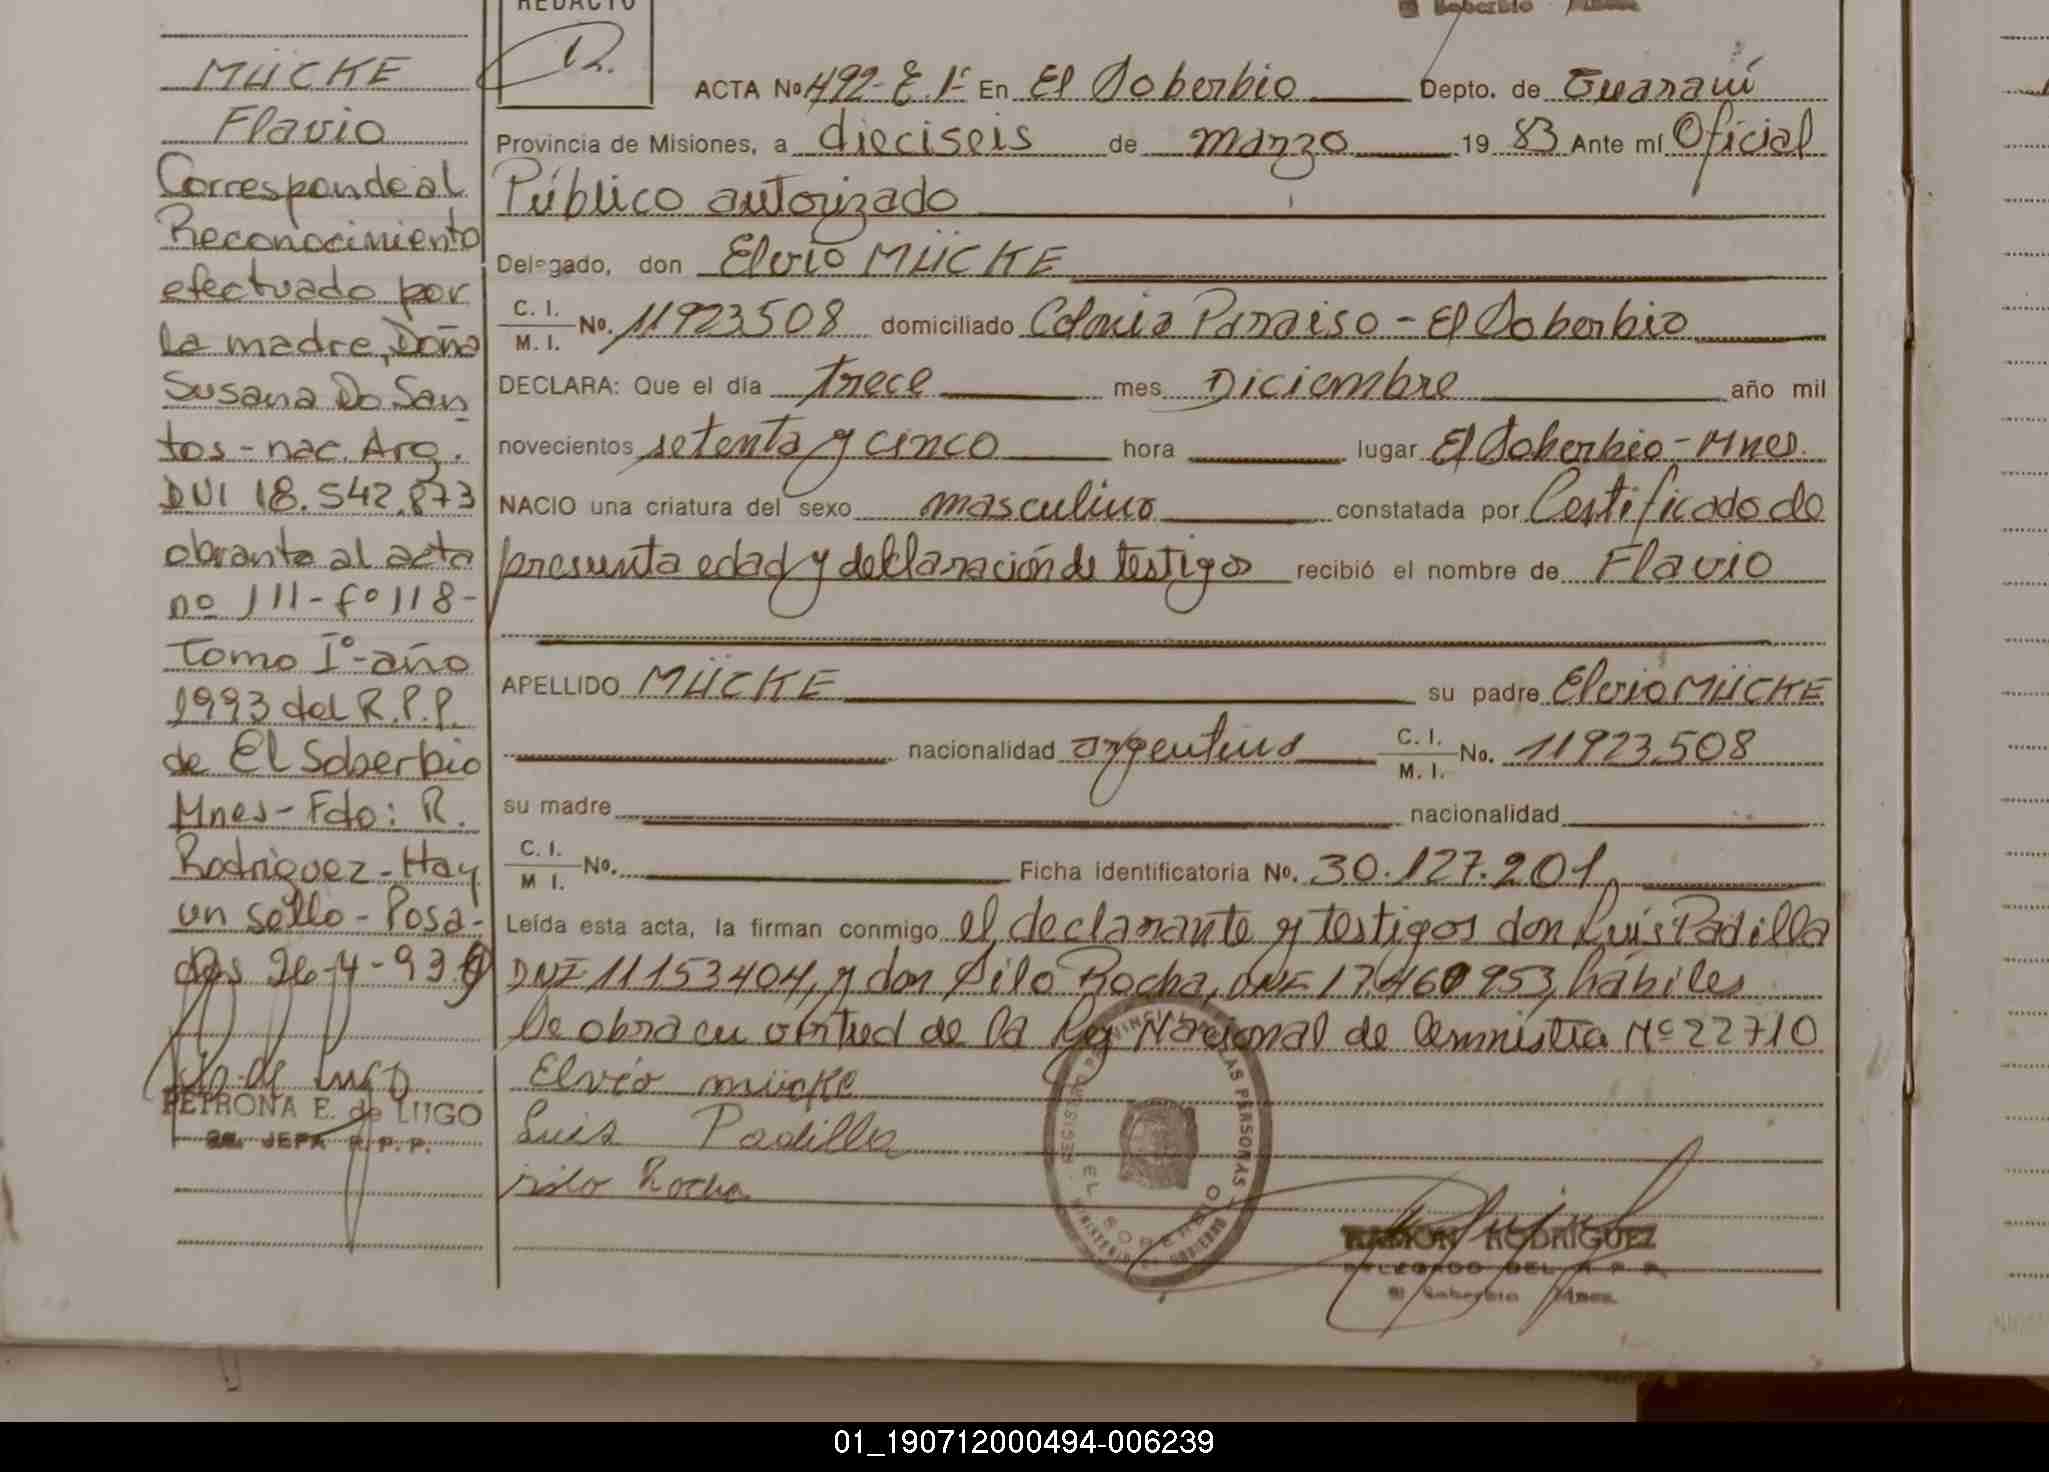 REDACTO
MÜCKE
Flavio
Corresponde al
Reconocimiento
efectuado por
la madre, Doña
Susana Do San
tos - nac. Arg.
DNI 18.542.873
obrante al acta
nº 111 - fº 118 -
Tomo Iº - año
1993 del R.P.P.
de El Soberbio
Mnes - Fdo: R.
Rodriguez - Hay
un sello - Posa-
das 26-4-93
PETRONA E. de LUGO
JEFA R.P.P.
El Soberbio Mnes.
ACTA Nº 492- E. 1ª En El Soberbio Depto. de Guaraní
Provincia de Misiones, a dieciseis de marzo 19 83 Ante mí Oficial
Público autorizado
Delegado, don Elvio MÜCKE
C. I. / M. I. No. 11923.508 domiciliado Colonia Paraiso - El Soberbio
DECLARA: Que el día trece mes Diciembre año mil
novecientos setenta y cinco hora lugar El Soberbio - Mnes.
NACIO una criatura del sexo masculino constatada por Certificado de
presunta edad y declaración de testigos recibió el nombre de Flavio
APELLIDO MÜCKE su padre Elvio MÜCKE
nacionalidad argentino C. I. / M. I. No. 11923.508
su madre nacionalidad
C. I. / M I. No. Ficha identificatoria No. 30.127.201
Leída esta acta, la firman conmigo el declarante y testigos don Luis Padilla
DNI 11153404, y don Silo Rocha, DNI 17.460953, hábiles
Se obra en virtud de la Ley Nacional de Amnistia Nº 22710
Elvio mücke
Luis Padilla
silo Rocha
REGISTRO PROVINCIAL DE LAS PERSONAS
EL SOBERBIO
MINISTERIO DE GOBIERNO
RAMON RODRIGUEZ
DELEGADO DEL R.P.P.
El Soberbio Mnes.
01_190712000494-006239